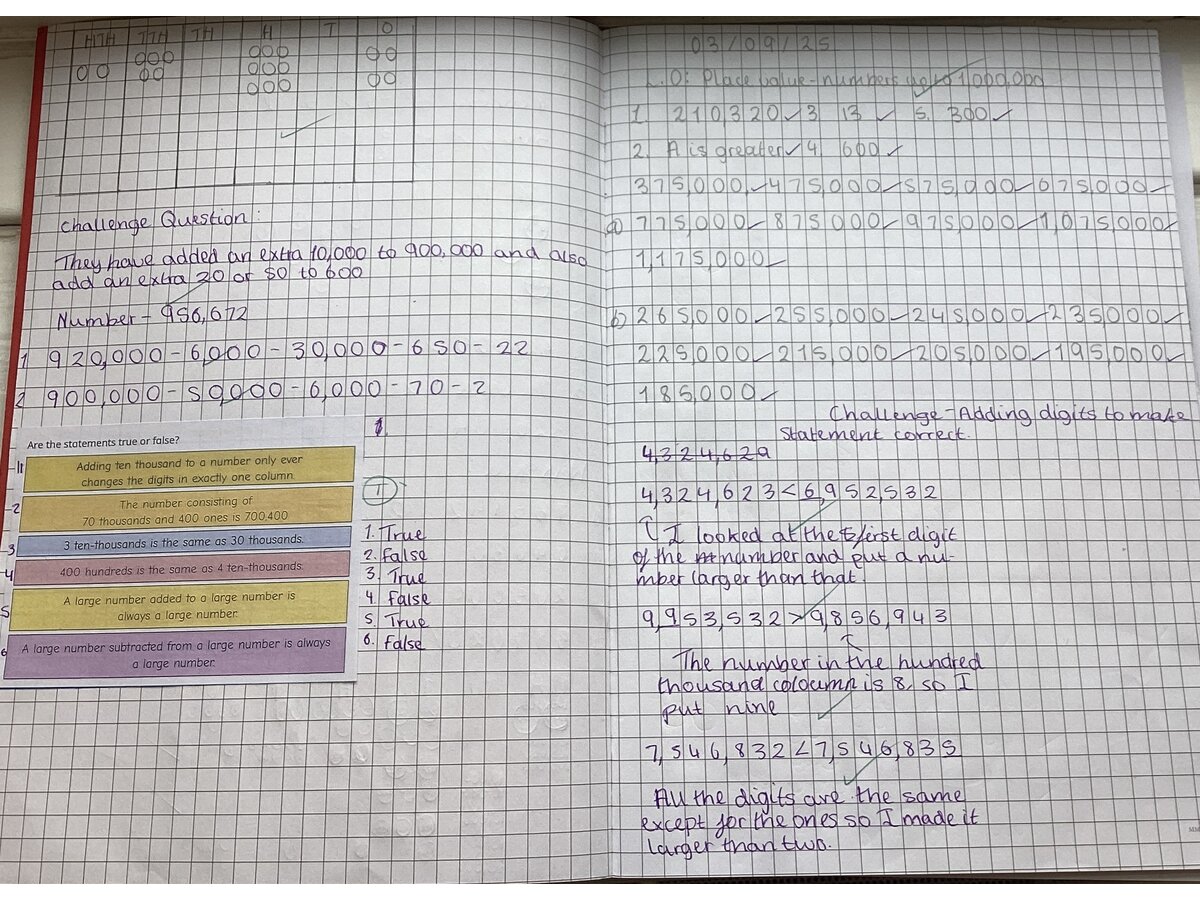 HTH TTH TH H T O
Challenge Question:
They have added an extra 10,000 to 900,000 and also
add an extra 20 or 50 to 600
Number - 956,672
1 920,000 - 6,000 - 30,000 - 650 - 22
2 900,000 - 50,000 - 6,000 - 70 - 2
1.
Are the statements true or false?
1 Adding ten thousand to a number only ever
changes the digits in exactly one column.
2 The number consisting of
70 thousands and 400 ones is 700,400
3 3 ten-thousands is the same as 30 thousands.
4 400 hundreds is the same as 4 ten-thousands.
5 A large number added to a large number is
always a large number.
6 A large number subtracted from a large number is always
a large number.
1. True
2. False
3. True
4. False
5. True
6. False
03/09/25
L.O: Place value - numbers up to 1,000,000
1. 210,320 3 13 5. 300
2. A is greater 4. 600
375,000 475,000 575,000 675,000
a) 775,000 875,000 975,000 1,075,000
1,175,000
b) 265,000 255,000 245,000 235,000
225,000 215,000 205,000 195,000
185,000
Challenge - Adding digits to make
statement correct.
4,324,629
4,324,623 < 6,952,532
I looked at the first digit
of the number and put a nu-
mber larger than that.
9,953,532 > 9,856,943
The number in the hundred
thousand coloumn is 8, so I
put nine
7,546,832 < 7,546,835
All the digits are the same
except for the ones so I made it
larger than two.